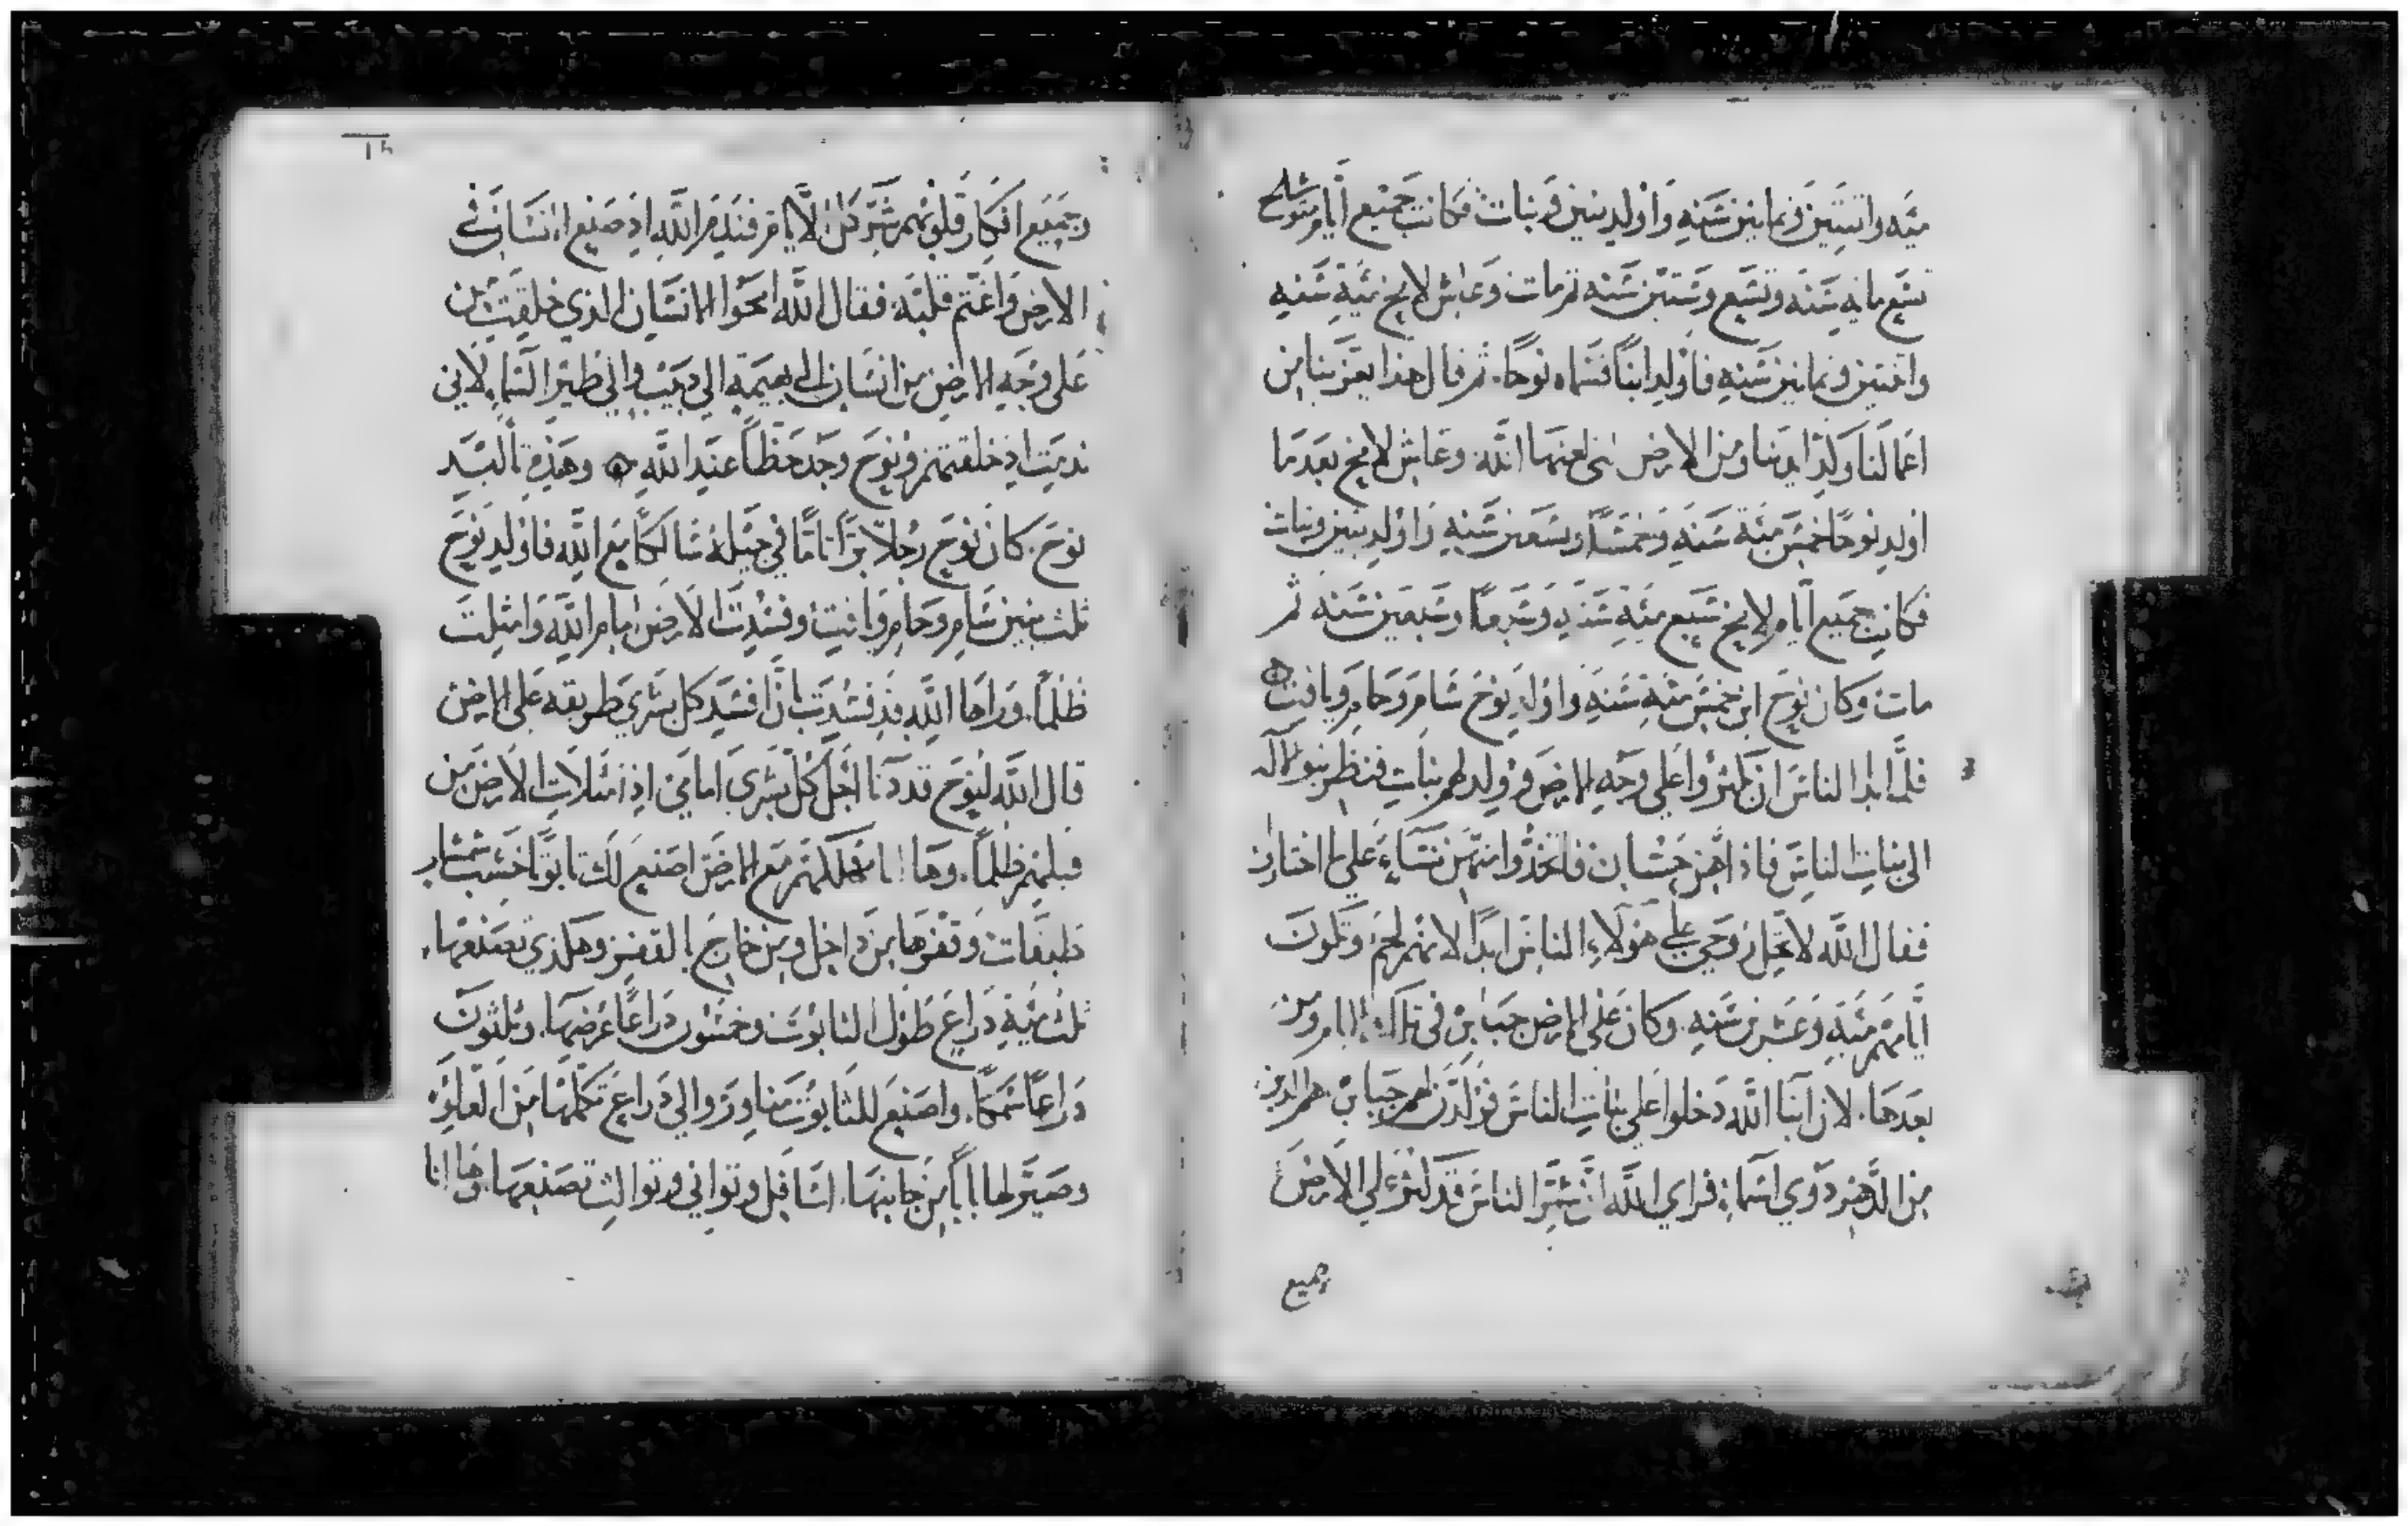 مئه واثنتين وثمانين سنه واولد بنين وبنات فكانت جميع ايام متوشلح
تسع مايه سنه وتسع وستين سنه ثم مات وعاش لامخ مئة سنه
واثنتين وثمانين سنه فاولد ابنًا فسماه نوحًا. ثم قال هذا يعزينا من
اعمالنا وكد ايدينا ومن الارض التي لعنها الله وعاش لامخ بعد ما
اولد نوحًا خمس مئة سنه وخمسًا وتسعين سنه واولد بنين وبنات
فكانت جميع ايام لامخ سبع مئة سنه وسبعًا وسبعين سنه ثم
مات وكان نوح ابن خمس مئة سنه واولد نوح سام وحام ويافت
فلما ابدا الناس ان يكثروا على وجه الارض وولد لهم بنات فنظر بنو الاله
الى بنات الناس فاذا هن حسان فاتخذوا منهن نساء على ما اختاروا
فقال الله لا تحل روحي على هولاء الناس ابدًا لانهم لحم وتكون
ايامهم مئة وعشرين سنه. وكان على الارض جبابرة في تلك الايام ومن
بعدها. لان ابنا الله دخلوا على بنات الناس فولدن لهم جبابرة هم الذين
من الدهر ذوي اسماء فراي الله ان شر الناس قد كثر على الارض
وجميع
وجميع افكار قلوبهم شر كل الايام فندم الله اذ صنع انسان في
الارض واغتم قلبه. فقال الله امحوا الانسان الذي خلقت من
على وجه الارض من انسان الى بهيمة الى دبيب والى طير السماء لاني
ندمت اذ خلقتهم ونوح وجد حظًا عند الله ۞ وهذه تاليد
نوح. كان نوح رجلًا برًا تامًا في جيله سالكًا مع الله فاولد نوح
ثلث بنين سام وحام ويافت وفسدت الارض امام الله وامتلت
ظلمًا. وراها الله قد فسدت بان افسد كل بشري طريقه على الارض
قال الله لنوح قد دنا اجل كل بشري امامي اذ امتلات الارض من
قبلهم ظلمًا. وها انا مهلكهم مع الارض اصنع لك تابوتًا خشب شمشار
طبقات وقفرها من داخل ومن خارج بالقفر وهكذي تصنعها.
ثلث مئة ذراع طول التابوت وخمسون ذراعًا عرضها. وثلثون
ذراعًا سمكًا. واصنع للتابوت مناور والي ذراع تكملها من العلو
وصير لها بابًا من جانبها. اسافل وتواني وتوالث تصنعها. وها انا